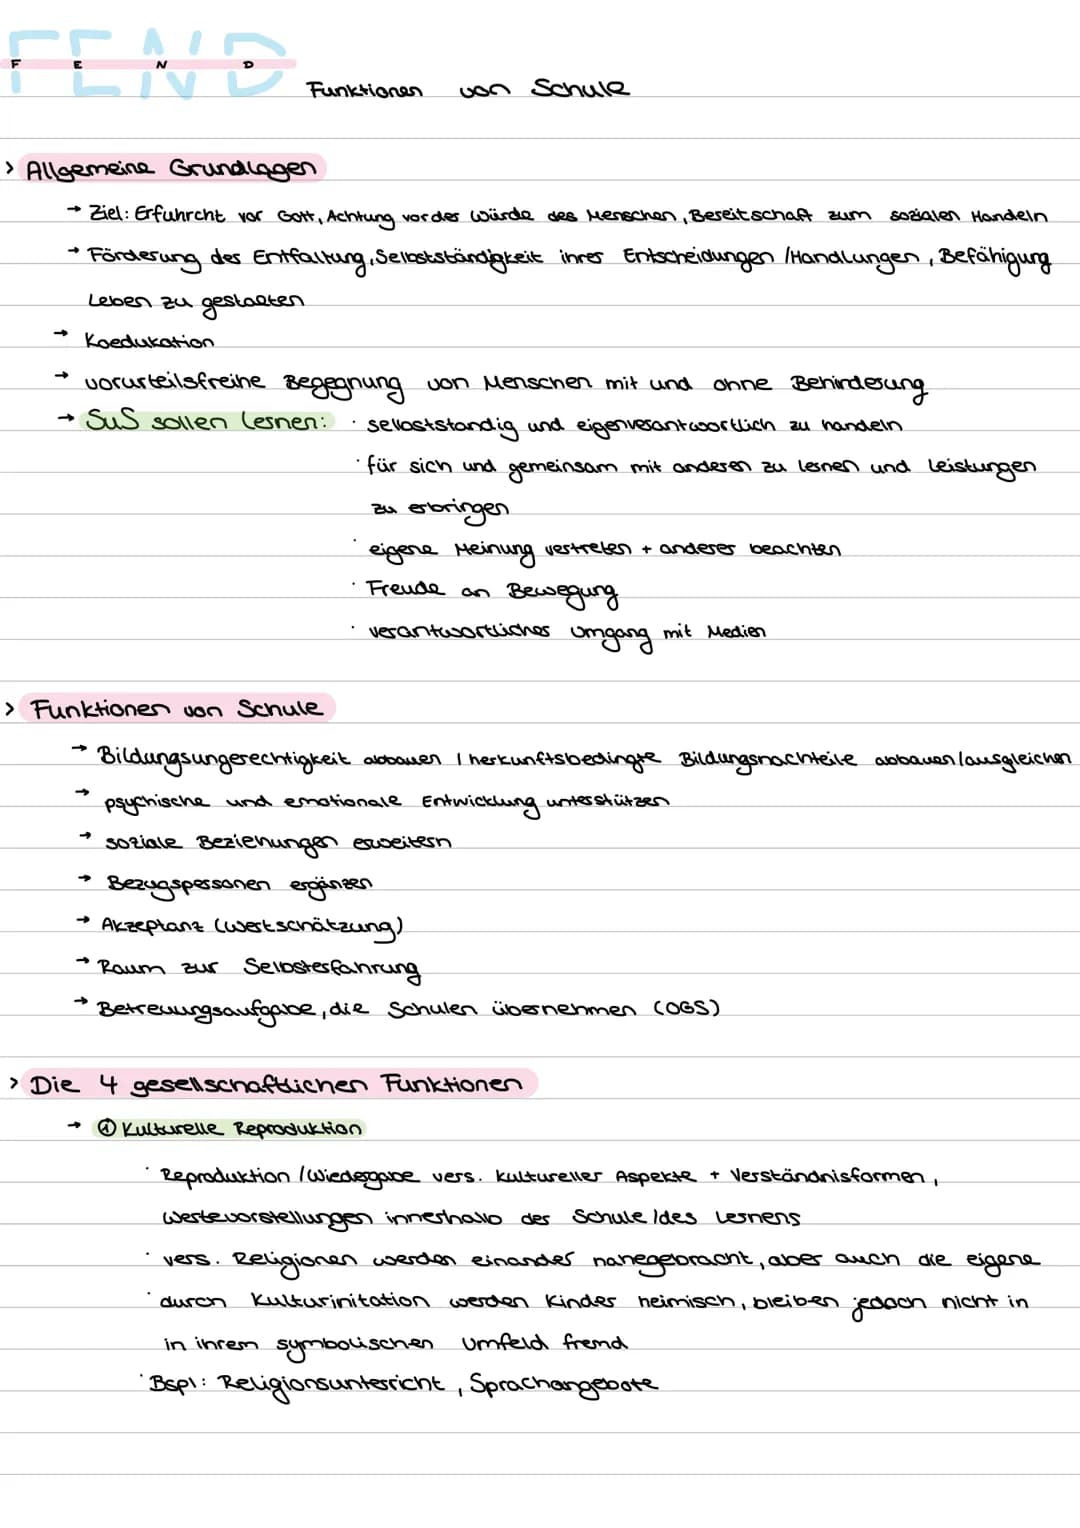 FEND
F E N D
Funktionen von Schule
> Allgemeine Grundlagen
→ Ziel: Erfuhrcht vor Gott, Achtung vor der Würde des Menschen, Bereitschaft zum sozialen Handeln
→ Förderung der Entfaltung, Selbstständigkeit ihrer Entscheidungen /Handlungen, Befähigung
Leben zu gestalten
→ Koedukation
→ vorurteilsfreihe Begegnung von Menschen mit und ohne Behinderung
→ SuS sollen lernen: · selbstständig und eigenverantwortlich zu handeln
· für sich und gemeinsam mit anderen zu lernen und Leistungen
zu erbringen
· eigene Meinung vertreten + anderer beachten
· Freude an Bewegung
· verantwortlicher Umgang mit Medien
> Funktionen von Schule
→ Bildungsungerechtigkeit abbauen / herkunftsbedingte Bildungsnachteile abbauen/ausgleichen
→ psychische und emotionale Entwicklung unterstützen
→ soziale Beziehungen erweitern
→ Bezugspersonen ergänzen
→ Akzeptanz (Wertschätzung)
→ Raum zur Selbsterfahrung
→ Betreuungsaufgabe, die Schulen übernehmen (OGS)
> Die 4 gesellschaftlichen Funktionen
→ ① Kulturelle Reproduktion
· Reproduktion /Wiedergabe vers. kultureller Aspekte + Verständnisformen,
Wertevorstellungen innerhalb der Schule /des Lernens
· vers. Religionen werden einander nahegebracht, aber auch die eigene
· durch Kulturinitation werden Kinder heimisch, bleiben jedoch nicht in
in ihrem symbolischen Umfeld fremd
· Bspl: Religionsunterricht, Sprachangebote